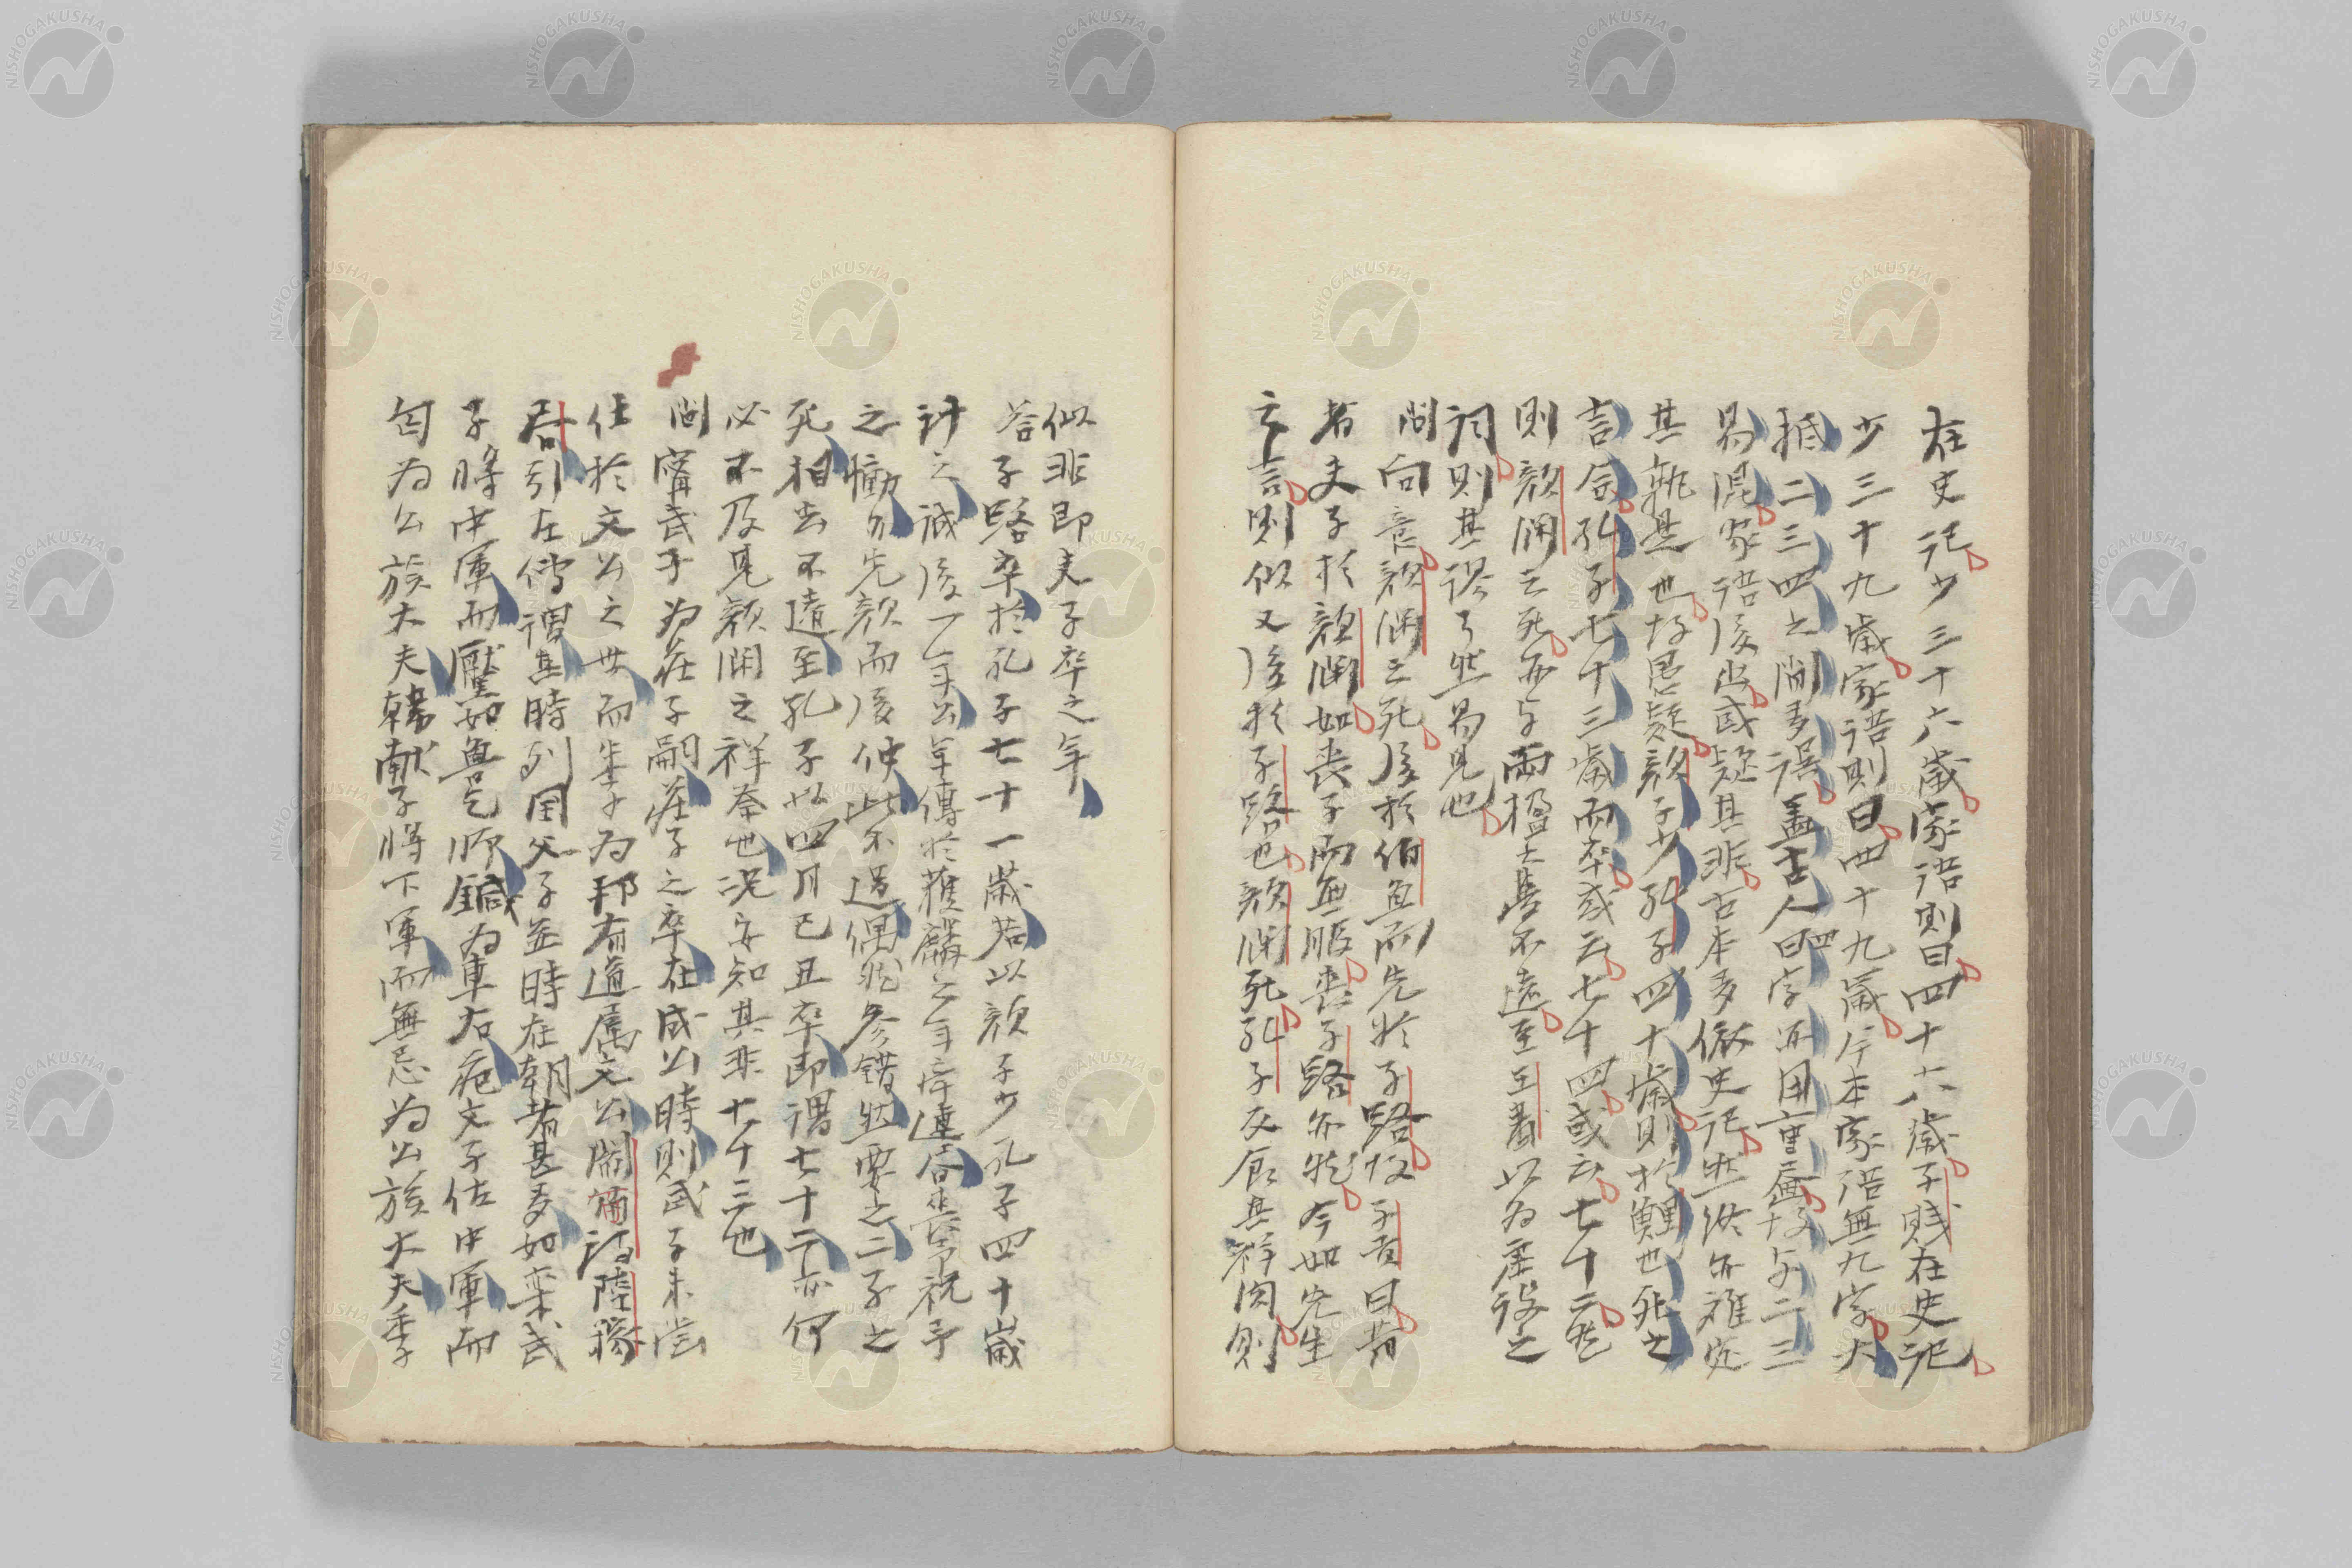 在史記少三十六歳家語則曰四十六歳子賎在史記
少三十九歳家語則曰四十九歳今本家語無九字大
抵二三四之間多誤蓋古人四字亦用重畫故与二三
易混家語後出或疑其非古本多依史記然終亦難定
其孰是也故愚疑顔子少孔子四十歳則於鯉也死之
言合孔子七十三歳而卒或云七十四或云七十二然
則顔淵之死亦与両楹之夢不遠至王肅以為虚設之
詞則其謬了然易見也
問向意顔淵之死後於伯魚而先於子路故子貢曰昔
者夫子於顔淵如喪子而無服喪子路亦然今如先生
之言則似又後於子路也顔淵死孔子反食其祥肉則
似非即夫子卒之年
答子路卒於孔子七十一歳若以顔子少孔子四十歳
計之誠後一年公羊傳於獲麟之年連合喪予祝予
之慟似先顔而後仲此不過偶然參錯然要之二子之
死相去不遠至孔子以四月已丑卒即謂七十二亦何
必不及見顔淵之祥奈也況安知其非七十三也
問甯武子為莊子嗣莊子之卒在成公時則武子未嘗
仕於文公之世而朱子為邦有道属文公閻百詩陸稼
書引左傳謂其時列国父子並時在朝者甚多如欒武
子將中軍而黶如魯乞師鍼為車右范文子佐中軍而
匄為公族大夫韓献子將下軍而無忌為公族大夫季
NISHOGAKUSHA